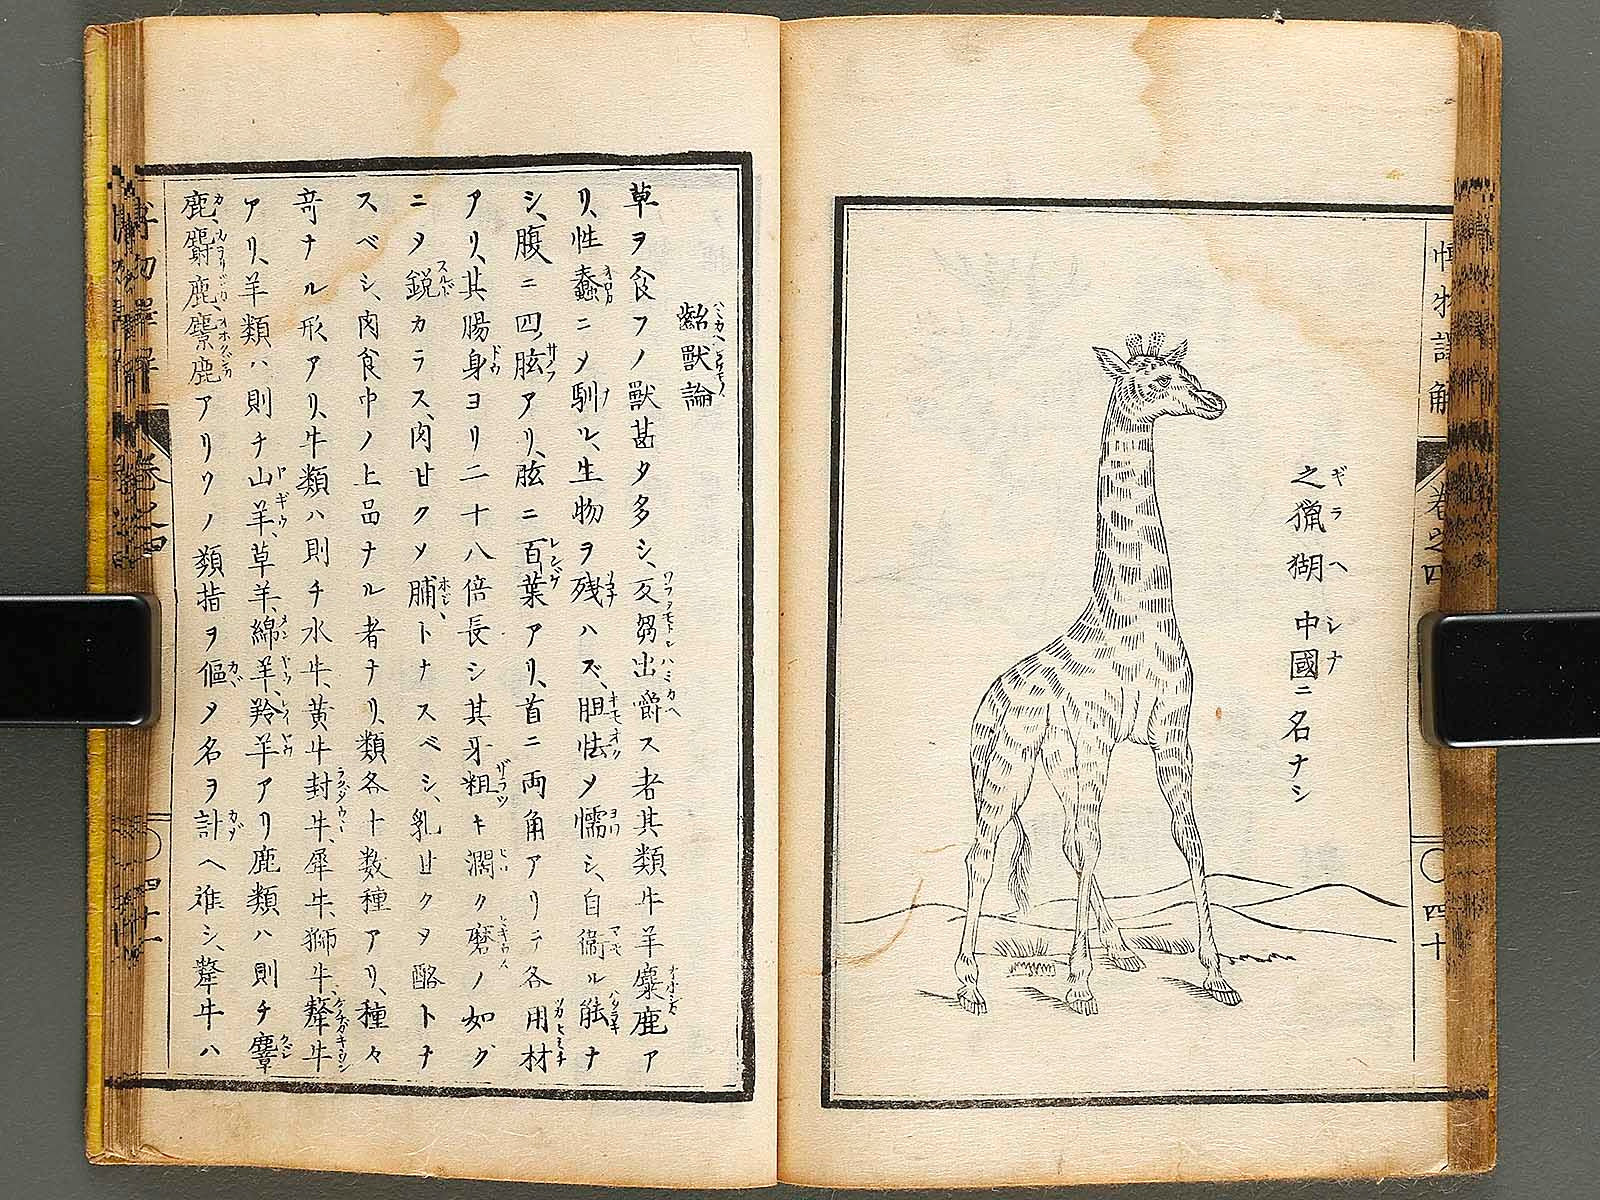 之獵猢 中國ニ名ナシ
ギラヘ シナ
卷之四
四十
齝獸論
草ヲ食フノ獸甚タ多シ、反芻出嚼ス者其類牛羊麋鹿ア
リ、性蠢ニメ馴ル、生物ヲ残ハズ、胆怯メ懦シ、自衞ル能ナ
シ、腹ニ四胘アリ、胘ニ百葉アリ、首ニ両角アリテ各用材
アリ、其腸身ヨリ二十八倍長シ其牙粗キ濶ク磨ノ如グ
ニメ鋭カラス、肉甘クメ脯トナスベシ、乳甘クメ酪トナ
スベシ、肉食中ノ上品ナル者ナリ、類各ト数種アリ、種々
奇ナル形アリ、牛類ハ則チ水牛、黄牛封牛、犀牛、獅牛、犛牛
アリ、羊類ハ則チ山羊、草羊、綿羊、羚羊アリ鹿類ハ則チ麞
鹿、麝鹿、麖鹿アリソノ類指ヲ傴メ名ヲ計ヘ難シ、犛牛ハ
卷之四
四十一